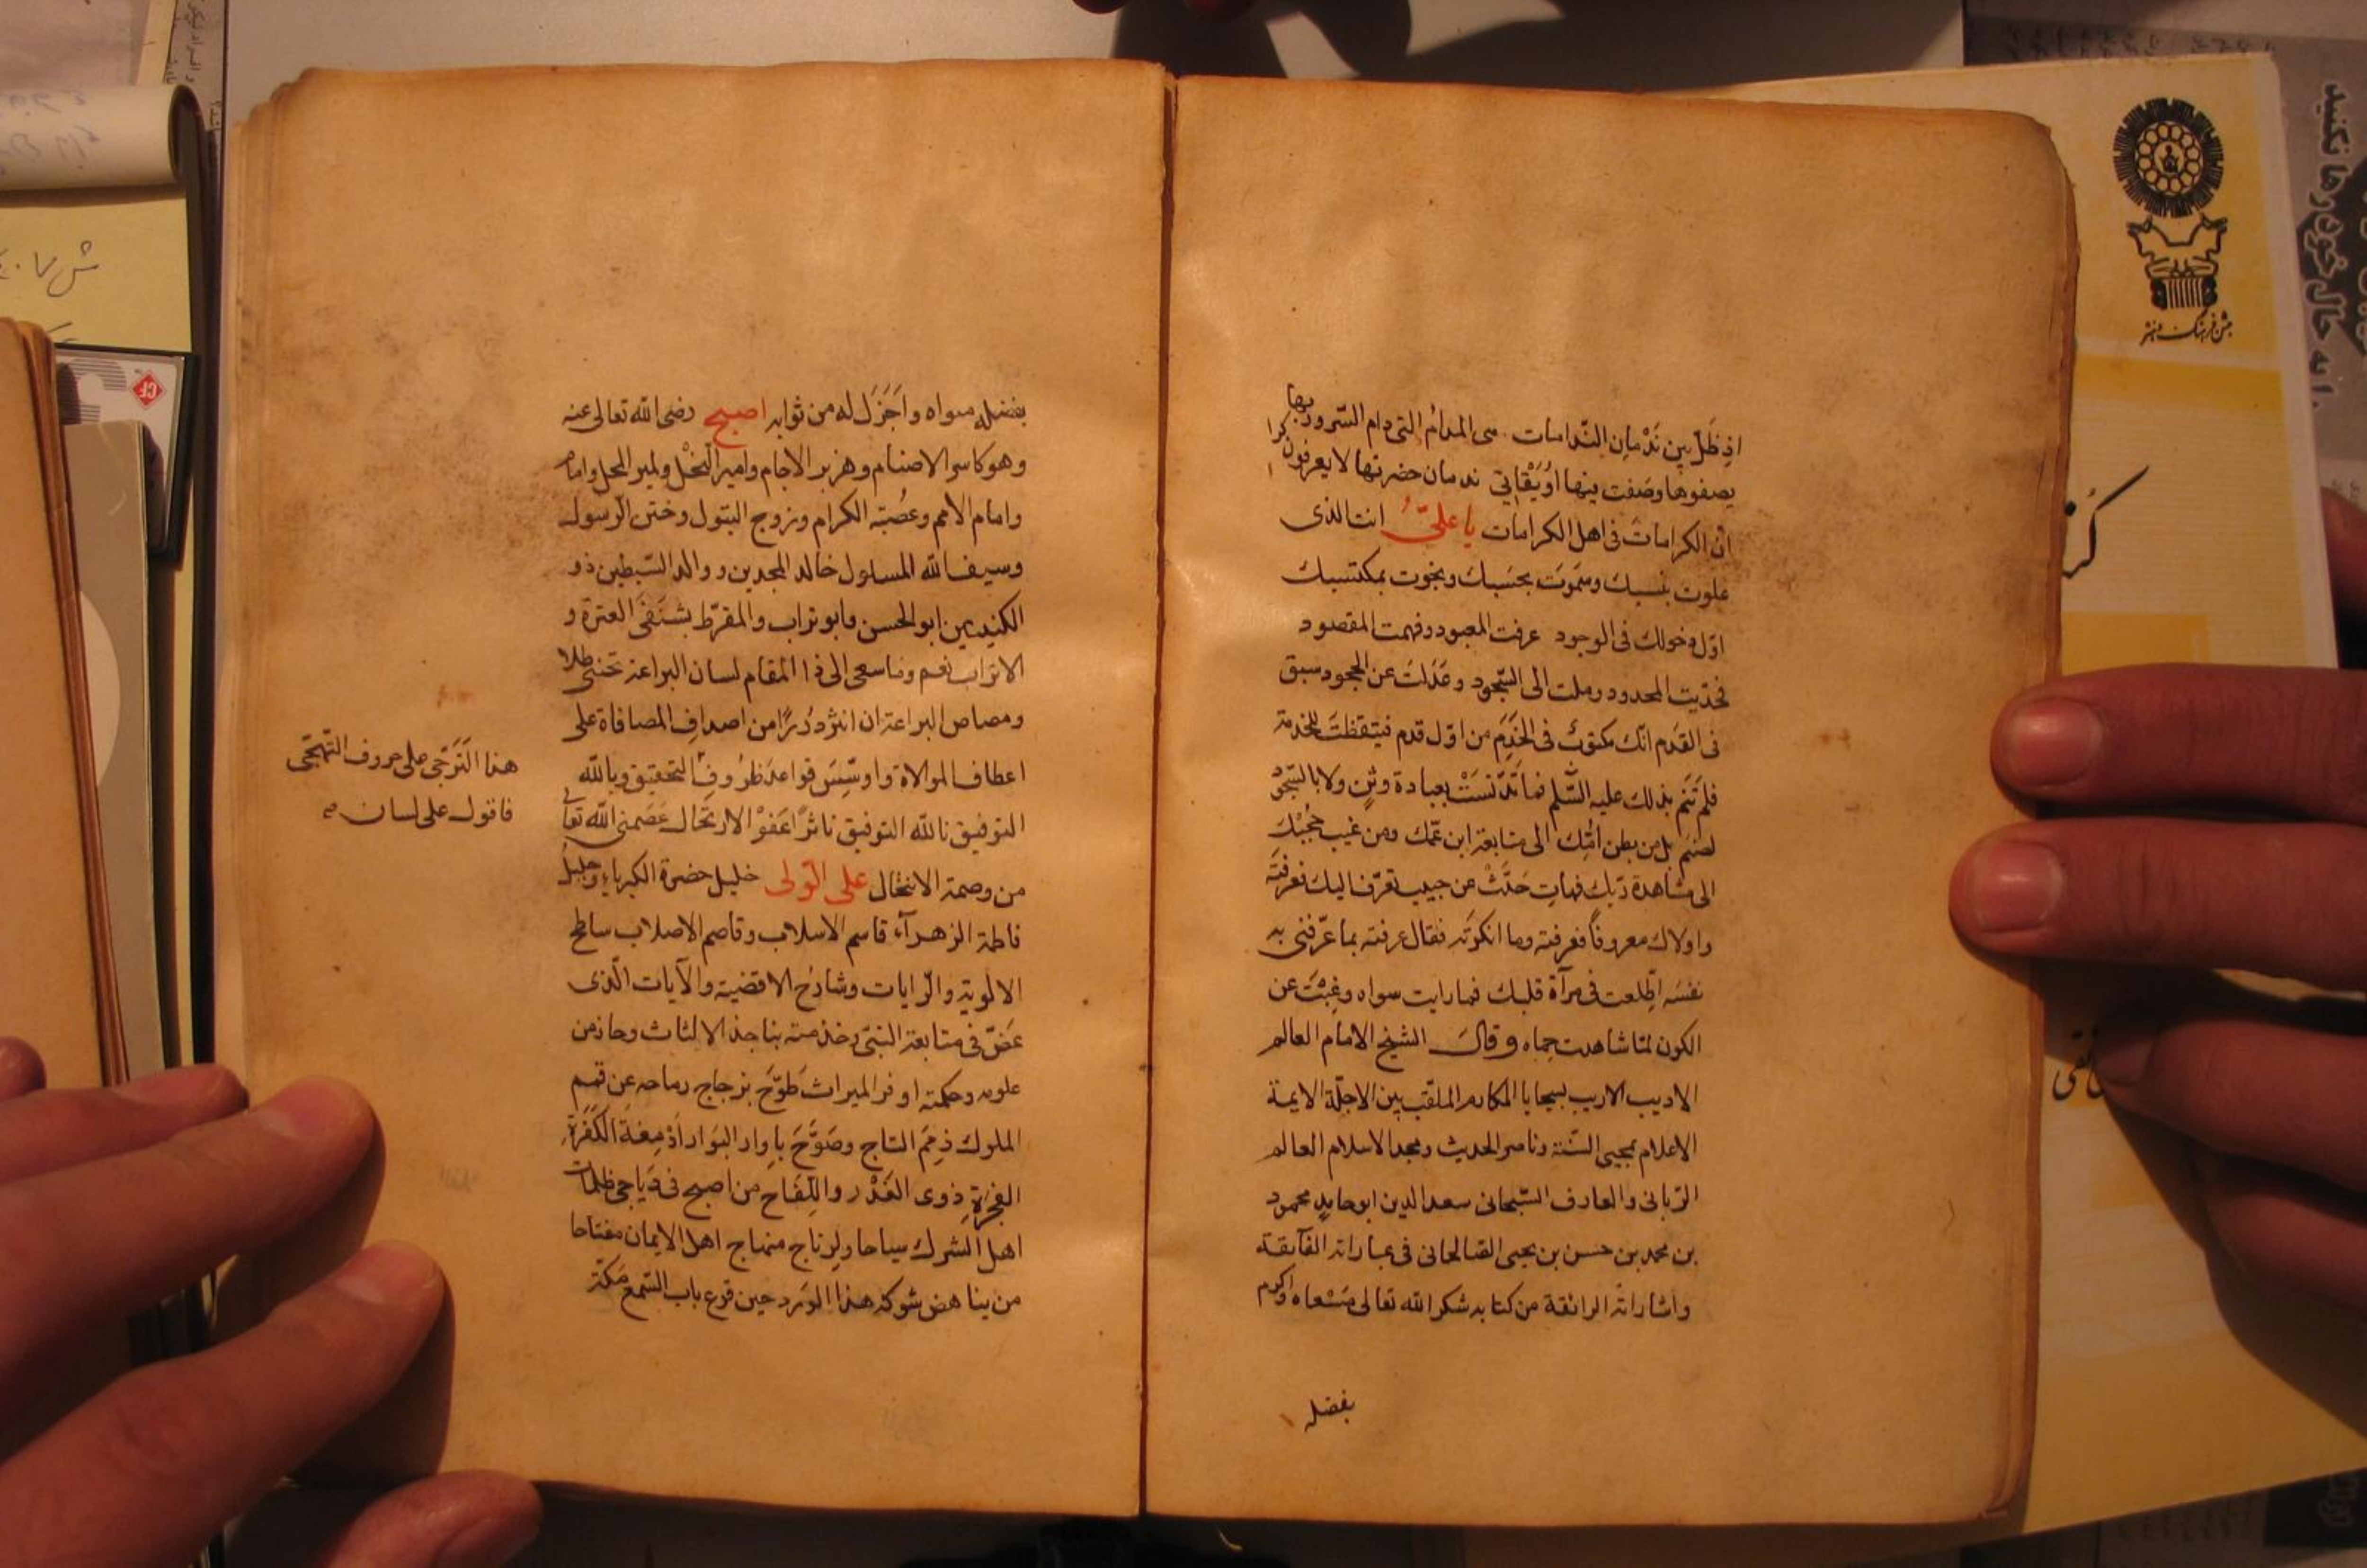 اذ ظَلّ بين نَدْمانِ النّدامات من المدامُ التى دام السّرور بها
يصفوها وصَفت بينها اوَيْقاتي ندمان حضرتها لا يعرفون كرا
ان الكرامات فى اهل الكرامات يا عليُّ انت الذى
علوت بنسبك وسَمَوتَ بحَسَبِكَ ونجوت بمكتسبك
اوّل دخولك فى الوجود عرفت المعبود وفهمت المقصود
فحدّيت المحدود وملت الى السّجود وعَدَلتَ عن الجحود سبق
فى القدَم انّك مكتوبٌ فى الخَدَمِ من اوّل قدم فتيقظتَ للخدمة
فلم تَنَم بذلك عليه السَّلم فما تَدَنّسَتْ بعبادة وثنٍ ولا بالسّجود
لصنم بل من بطن امّك الى متابعة ابن عمّك ومن غيب حُجبْكَ
الى مشاهدة ربّك فهاتِ حَدِّثْ عن حبيب تعرّف اليك فعرفتَه
واولاك معروفاً فعرفته وما انكرتَه فقال عرفته بما عرّفنى به
نفسَه اطّلعت فى مرآة قلبك فما رايت سواه وغِبْتَ عن
الكون لمّا شاهدت حماه وقال الشيخ الامام العالم
الاديب الاريب بسجايا المكارم الملقّب بين الاجلّة الايمة
الاعلام بمحيى السّنة وناصر الحديث ومجد الاسلام العالم
الرّبانى والعارف السّبحانى سعد الدين ابو حامدٍ محمود
بن محمد بن حسن بن يحيى الصالحانى فى عباراته الفآئقة
واشاراته الرائقة من كتابه شكر الله تعالى مَسْعاه واكرم
بفضله
بفضله مثواه واَجَزَل له من ثوابه اصبح رضى الله تعالى عنه
وهو كاسر الاصنام وهزبر الاجام وامير النحْل ولمير المحل وامام
وامام الامم وعُصبَة الكرام وزوج البتول وختن الرّسول
وسيف الله المسلول خالد المجدين ووالد السّبطين ذو
الكنيتين ابو الحسن وابو تراب والمقرّط بشنَفَى العترة و
الاتراب نعم وما سعى الى ذا المقام لسان البراعة تحننى طلا
ومصاص البراعة ان انثر دُرَرًا من اصداف المصافاة على
اعطاف الموالاة واوسِّسَ قواعد ظُرُوف التحقيق وبالله
التوفيق نالله التوفيق ناثرًا عَفوْ الارتحال عَصَمنى الله تعالى
من وصمة الانتحال على الوّلى خليل حضرة الكبرياء وحليل
فاطمة الزهرآء قاسم الاسلاب وقاصم الاصلاب ساطح
الالوية والرّايات وشارحُ الاقضية والآيات الّذى
عَضّ فى متابعة النبىّ وخدمته بناجذ الالثاث وحاز من
علومه وحكمته اوفر الميراث طَوّحَ بزجاج رماحه عن قمم
الملوك ذِمَم التاج وصَوَّحَ باوار البَوار اَدْمِغَةَ الكَفَرَةِ
الفَجَرَةِ ذوى الغَدْر واللّقاح من اصبح فى دَياجى ظلمات
اهل الشرك سياحا ولرتاج منهاج اهل الايمان مفتاحا
من يناهض شوكة هذا الوَرد حين قرع باب السّمع مكّة
هذا التَرَجّى على حروف التّهجّى
فاقول على لسان
ش ٧٠٤
جشن فرهنگ و هنر